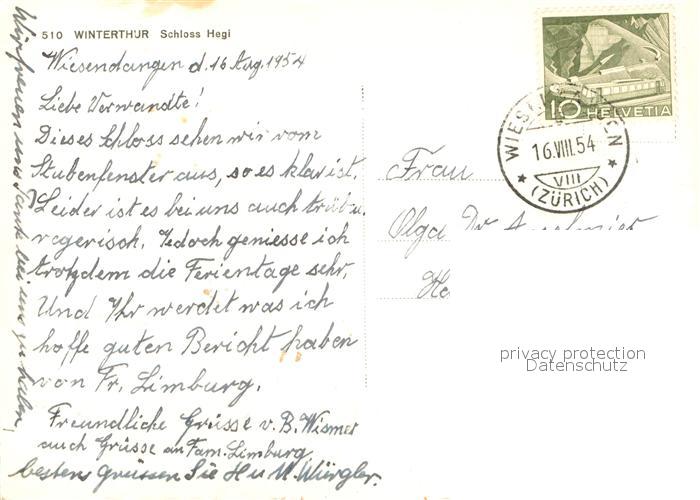 510 WINTERTHUR Schloss Hegi
Wiesendangen d. 16 Aug. 1954
Liebe Verwandte!
Dieses Schloss sehen wir vom
Stubenfenster aus, so es klar ist.
Leider ist es bei uns auch trüb u.
regerisch. Jedoch geniesse ich
trotzdem die Ferientage sehr.
Und Ihr werdet was ich
hoffe guten Bericht haben
von Fr. Limburg.
Freundliche Grüsse v. B. Wismer
auch Grüsse an Fam. Limburg
bestens grüssen Sie H u M. Würgler.
Wir freuen uns bei uns zu haben
10 HELVETIA
WIESENDANGEN
16.VIII.54
VIII
(ZÜRICH)
Frau
Olga Dr
He
privacy protection
Datenschutz